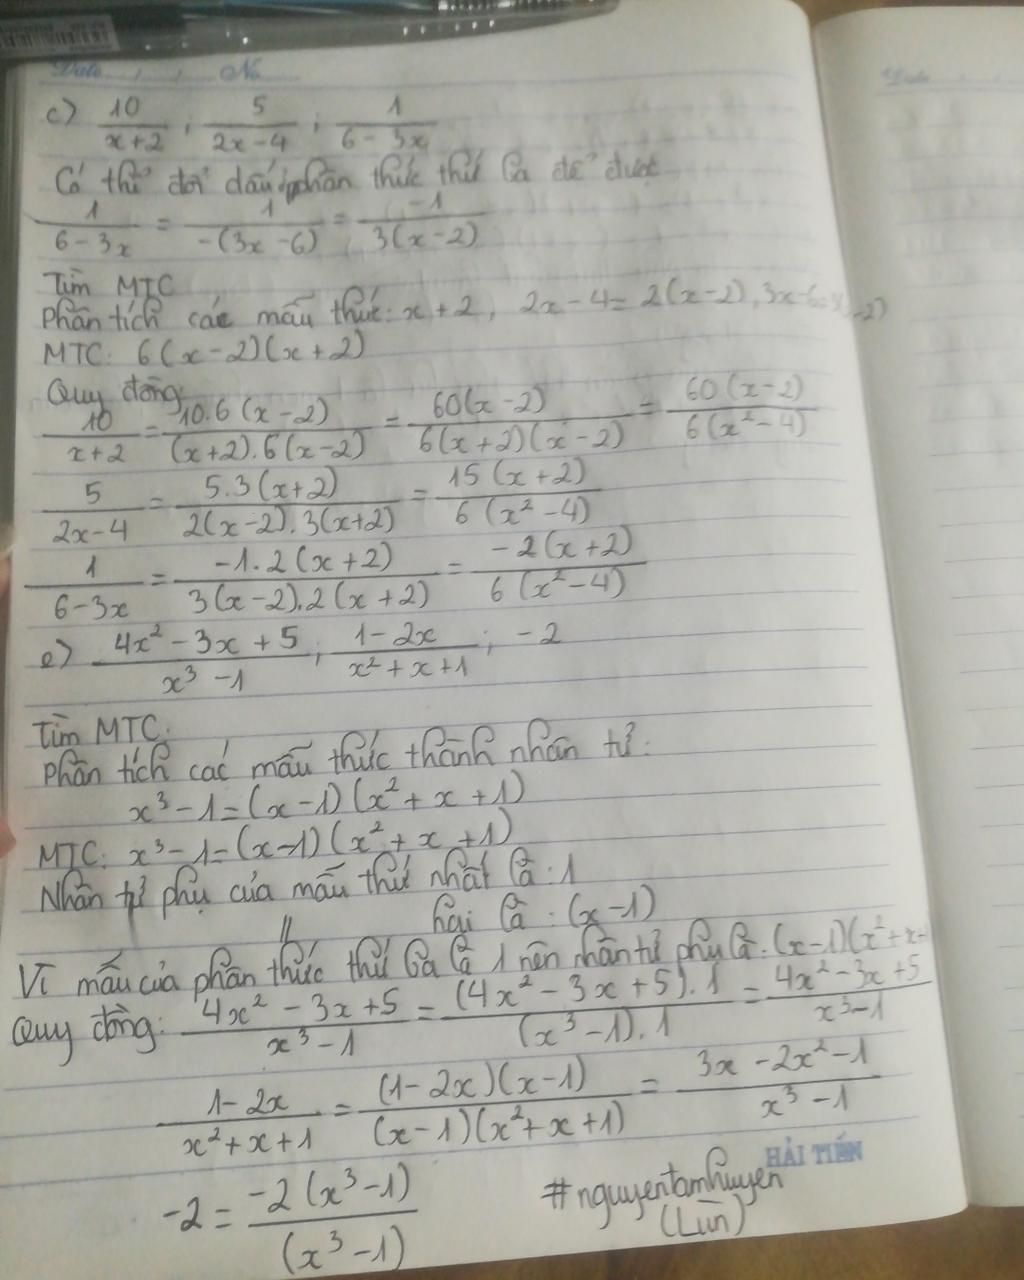 Date No
Date
c) 10/(x+2) ; 5/(2x-4) ; 1/(6-3x)
Có thể đổi dấu phân thức thứ ba để được
1/(6-3x) = 1/(-(3x-6)) = -1/(3(x-2))
Tìm MTC
Phân tích các mẫu thức: x+2, 2x-4 = 2(x-2),
MTC: 6(x-2)(x+2)
Quy đồng:
10/(x+2) = 10.6(x-2)/((x+2).6(x-2)) = 60(x-2)/(6(x+2)(x-2)) = 60(x-2)/(6(x²-4))
5/(2x-4) = 5.3(x+2)/(2(x-2).3(x+2)) = 15(x+2)/(6(x²-4))
1/(6-3x) = -1.2(x+2)/(3(x-2).2(x+2)) = -2(x+2)/(6(x²-4))
e) (4x²-3x+5)/(x³-1) ; (1-2x)/(x²+x+1) ; -2
Tìm MTC:
Phân tích các mẫu thức thành nhân tử:
x³-1=(x-1)(x²+x+1)
MTC: x³-1=(x-1)(x²+x+1)
Nhân tử phụ của mẫu thứ nhất là: 1
〃 hai là: (x-1)
Vì mẫu của phân thức thứ ba là 1 nên nhân tử phụ là: (x-1)(x²+x+
Quy đồng: (4x²-3x+5)/(x³-1) = (4x²-3x+5).1/((x³-1).1) = (4x²-3x+5)/(x³-1)
(1-2x)/(x²+x+1) = (1-2x)(x-1)/((x-1)(x²+x+1)) = (3x-2x²-1)/(x³-1)
HẢI TIẾN
-2 = -2(x³-1)/(x³-1)
#nguyentamhuyen
(Lùn)